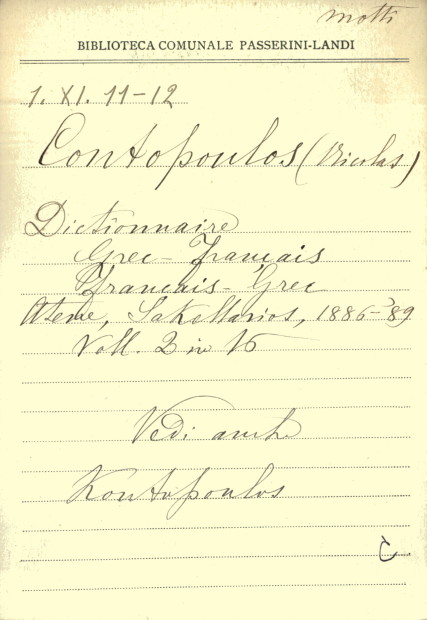 motti
BIBLIOTECA COMUNALE PASSERINI-LANDI
1. XI. 11-12
Contopoulos (Nicolas)
Dictionnaire
Grec-Français
Français-Grec
Atene, Sakellarios, 1886-89
Voll. 2 in 16
Vedi anche
Kontopoulos